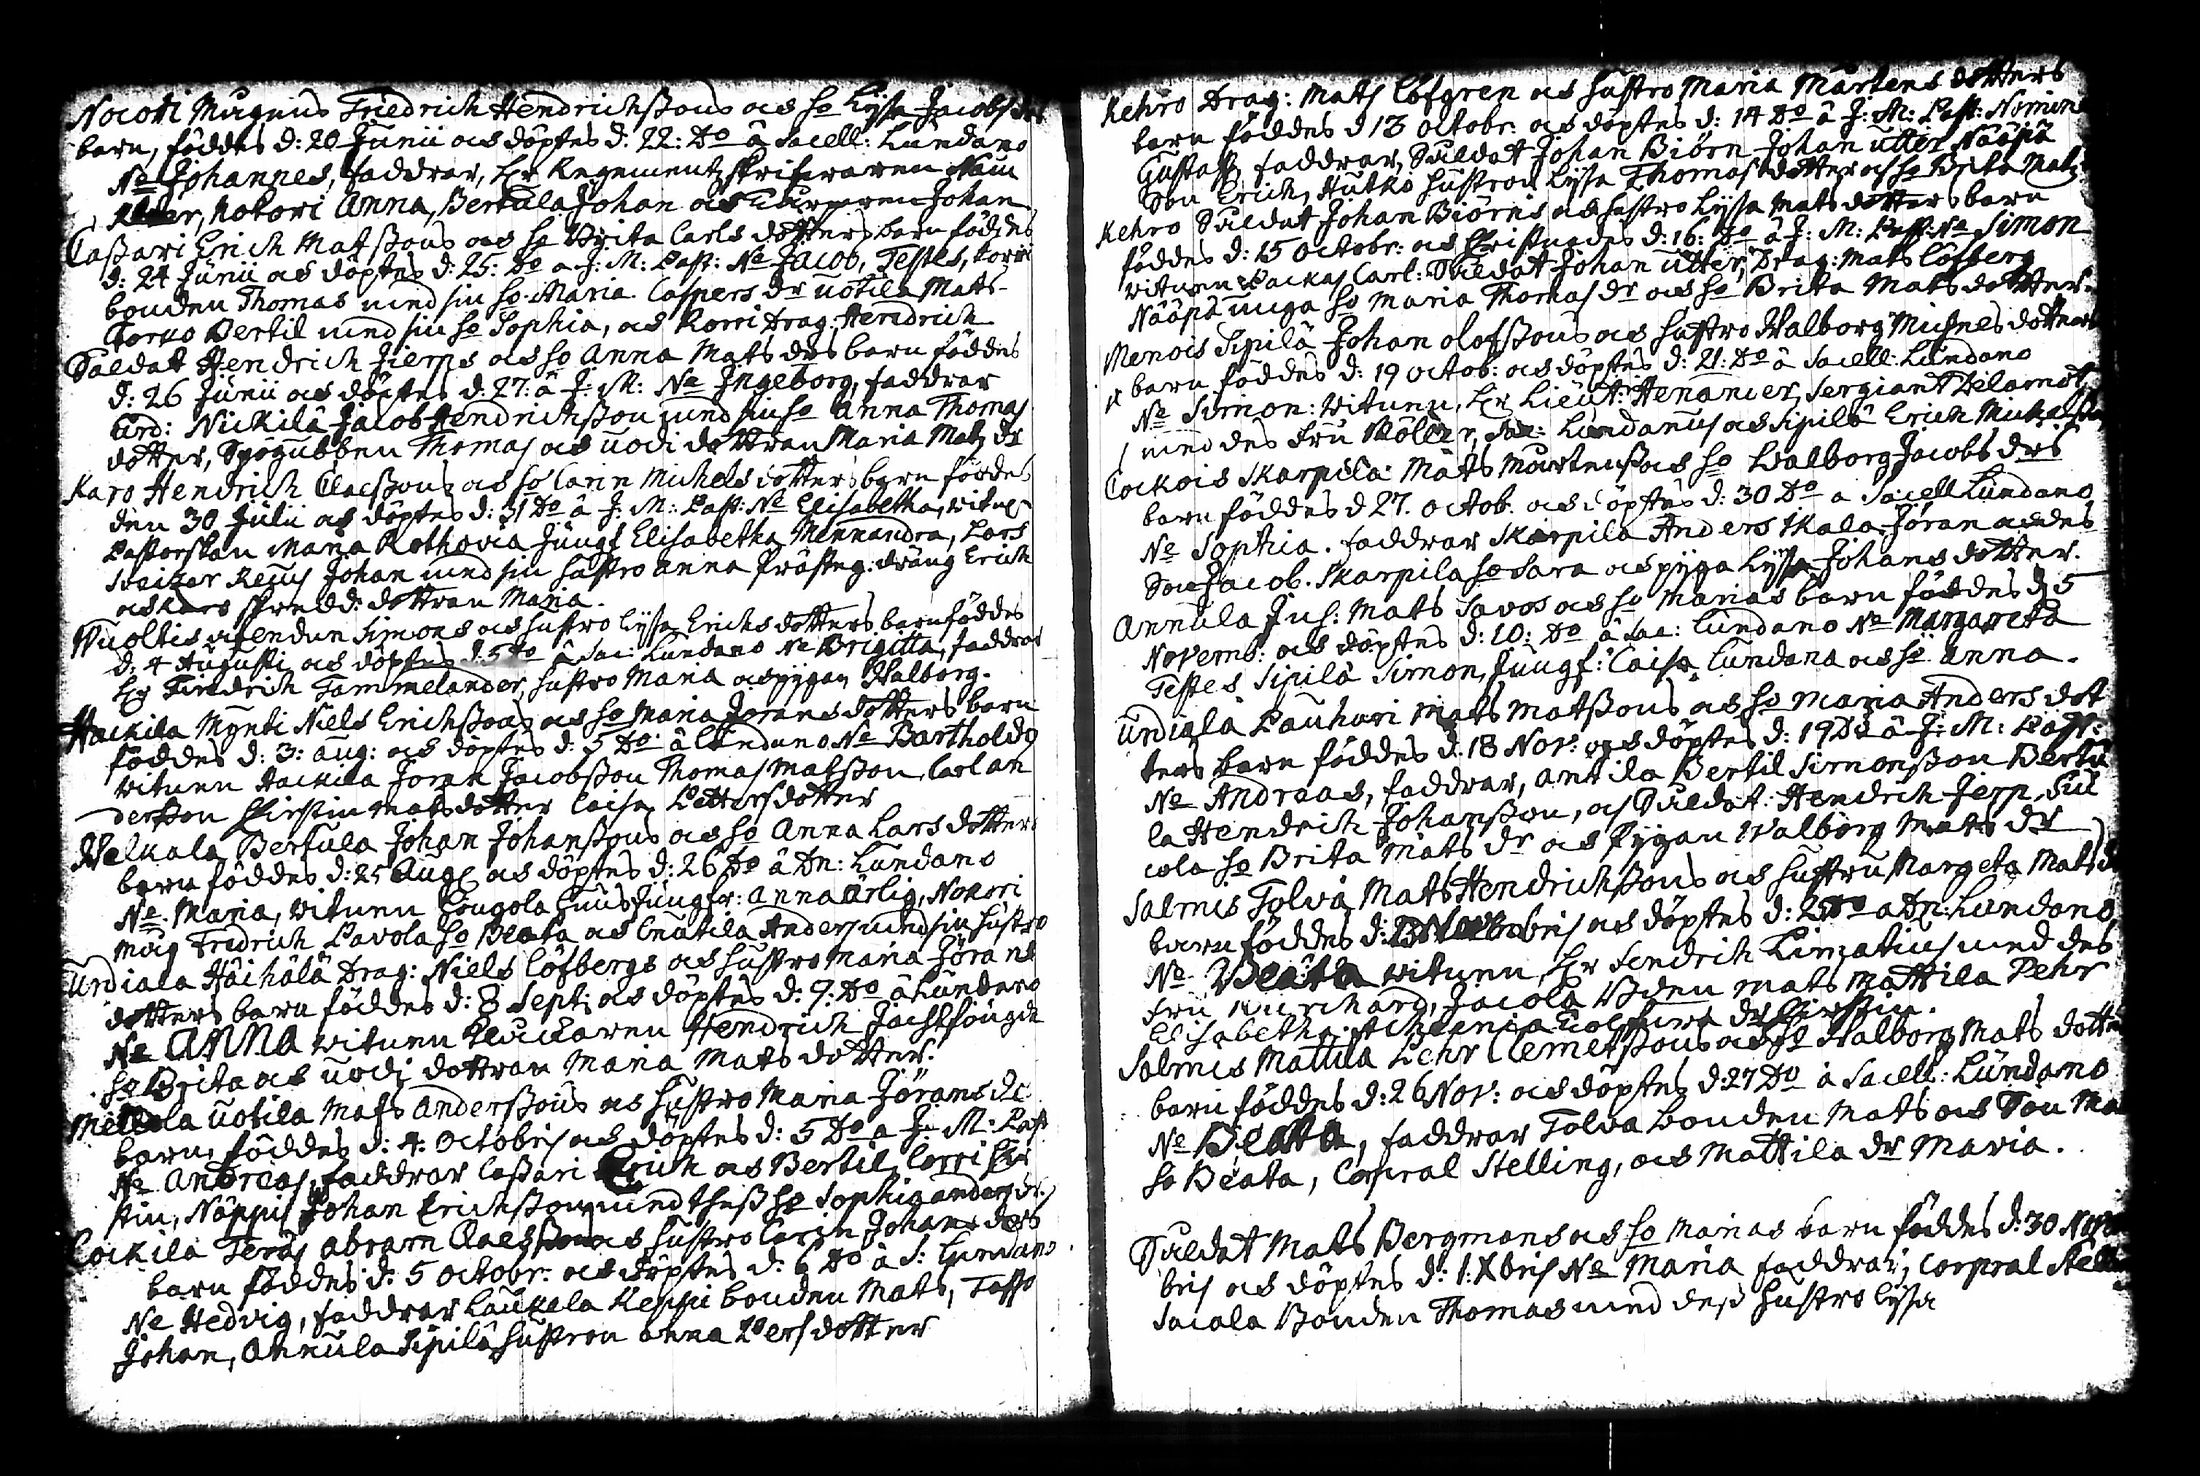 Nocoti Magnus Friedrich Hendrichßons och ho Lysa Jacobs drs
barn, föddes d: 20 Junii och döptes d: 22: Do â Sacell: Lundano
Ne Johannes, faddrar, Hr Regementz skrifwaren
Notori Anna, Bertula Johan och Johan
Caßari Erich Matßons och ho Brita Carls dotters barn föddes
d: 24 Junii och döptes d: 25: Do a J: M: Past: Ne Jacob, Testes, Korri
bonden Thomas med sin ho Maria Caspers dr Uotila Mats
Bertil med sin ho Sophia, och Korri Drag: Hendrich
Saldat Hendrich Jierps och ho Anna Mats drs barn föddes
d: 26 Junii och döptes d: 27: â J: M: Ne Ingeborg, faddrar
Urd: Nickilä Jacob Hendrichßon med sin ho Anna Thomas
dotter, Spögubben Thomas och Uodi dottran Maria Matz dr
Karo Hendrich Claeßons och ho Carin Michels dotters barn föddes
den 30 Julii och döptes d: 31 Do â J: M: Past: Ne Elisabetha, vitn:
Pastorskan Maria Rothovia Jungf Elisabetha Mennandra, Lars
Johan med sin hustro Anna Prästeg: dräng Erich
och Lars dottran Maria.
Wuoltis Simons och hustro Lysa Erichs dotters barn föddes
d: 4 Augusti och döptes d: 5 Do â Sac: Lundano Ne Brigitta, faddrar
Hr Friedrich Tammelander, hustro Maria och pygan Walborg.
Hackila Mynti Niels Erichßons och ho Maria Jörans dotters barn
föddes d: 3: Aug: och döptes d: 5 Do â Lundano Ne Bartholdg
vitnen Hackila Jöran Jacobßon Thomas Matßon, Carl An
derßon Christin Mats dotter Caisa Pettersdotter
Bertula Johan Johanßons och ho Anna Lars dotters
barn föddes d: 25 Aug och döptes d: 26 Do â Dn: Lundano
Ne. Maria, vitnen Congola Huus Jungfr: Anna Ärlig, Nokori
Mag Fredrich Pavola ho Beata och Cnutila Anders med sin hustro
Urdiala Häihälä Drag: Niels Löfbergs och hustro Maria Jörans
dotters barn föddes d: 8 Sept: och döptes d: 9: Do â Lundano
Ne Anna vitnen Hendrich
ho Brita och Uodi dottran Maria Mats dotter.
Mellola Uotila Mats Anderßons och hustro Maria Jörans drs
barn, föddes d: 4: Octobris och döptes d: 5 Do a J: M: Past
Ne Andreas, faddrar Caßari Erich och Bertil, Corri Chri
stin, Näppis Johan Erichßon med theß ho Sophia Anders dr.
Cockila Teräs Abram Claeßons och hustro Carin Johans drs
barn föddes d: 5 Octobr: och döptes d: 6 Do â S: Lundano
Ne Hedvig, faddrar Laukela Keppi bonden Mats, Toffo
Johan, Annula Sipilä hustron Anna Pers dotter
Kehro Drag: Mats Löfgren och hustro Maria Mårtens dotters
barn föddes d 13 Octobr: och döptes d: 14 Do â J: M: Past: Nomine
Gustaff, faddrar, Saldat Johan Biörn Johan Utter Nääpä
Son Erich, Hutko hustron Lysa Thomas dotter och ho Brita Matz
Kehro Saldat Johan Biörns och hustro Lysa Mats dotters barn
föddes d: 15 Octobr: och Christnades d: 16: Do â J: M: Past: Ne Simon
vitnen Packas Carl: Saldat Johan Utter, Drag: Mats Löfberg
Nääpä unga ho Maria Thomas dr och ho Brita Mats dotter.
Menois Sipilä Johan Olofßons och hustro Walborg dotters
barn föddes d: 19 Octob: och döptes d: 21: Do â Sacell: Lundano
Ne Simon: vitnen, Hr Lieut: Sergiant
med des fru Möller, Sac: Lundanus och Sipilä Erich Mickelßon
Cockois Skarpila Mats Mårtenß och ho Walborg Jacobs drs
barn föddes d 27. Octob. och döptes d: 30 Do a Sacell Lundano
Ne Sophia. faddrar Skarpila Anders Skala Jöran
Son Jacob. Skarpila ho Sara och pyga Lysa Johans dotter.
Annula Inh: Mats Savos och ho Marias barn föddes d 5
Novemb: och döptes d: 10: Do â Sac: Lundano Ne Margareta
Testes, Sipilä Simon, Jungf: Caisa Lundana och ho Anna.
Urdiala Lauhari Mats Matßons och ho Maria Anders dot
ters barn föddes d: 18 Nov: och döptes d: 19 Do â J: M: Past:
Ne Andreas, faddrar, Antila Bertil Simonßon Bertu
la Hendrich Johanßon, och Saldat: Hendrich Jerp, Sul
cola ho Brita Mats dr och Pygan Walborg Mats dr
Salmis Tolva Mats Hendrichßons och hustru Margeta Mats dr
barn föddes d: bris och döptes d: Do a Dn: Lundano,
Ne Beata vitnen, Hr Hendrich Limatius med des
fru Burchard, Jacola Mats Mattila Pehr
Elisabetha dr Kirstin.
Salmis Mattila Pehr Clemetßons och ho Walborg Mats dotters
barn föddes d: 26 Nov: och döptes d: 27 Do â Sacell: Lundano
Ne Beata, faddrar Tolva bonden Mats och Son Ma
ho Beata, Corpral Stelling, och Mattila dr Maria.
Saldat Mats Bergmans och ho Marias barn föddes d: 30 Nov
bris och döptes d: 1: Xbris Ne Maria faddrar, Corpral Stelli
Sacala Bonden Thomas med deß hustro Lysa